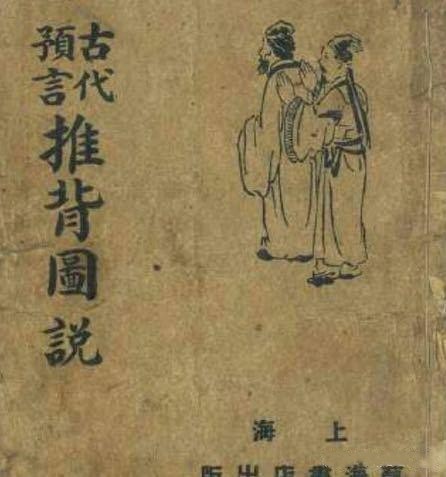 古代
預言
推背圖說
上海
海書店出版